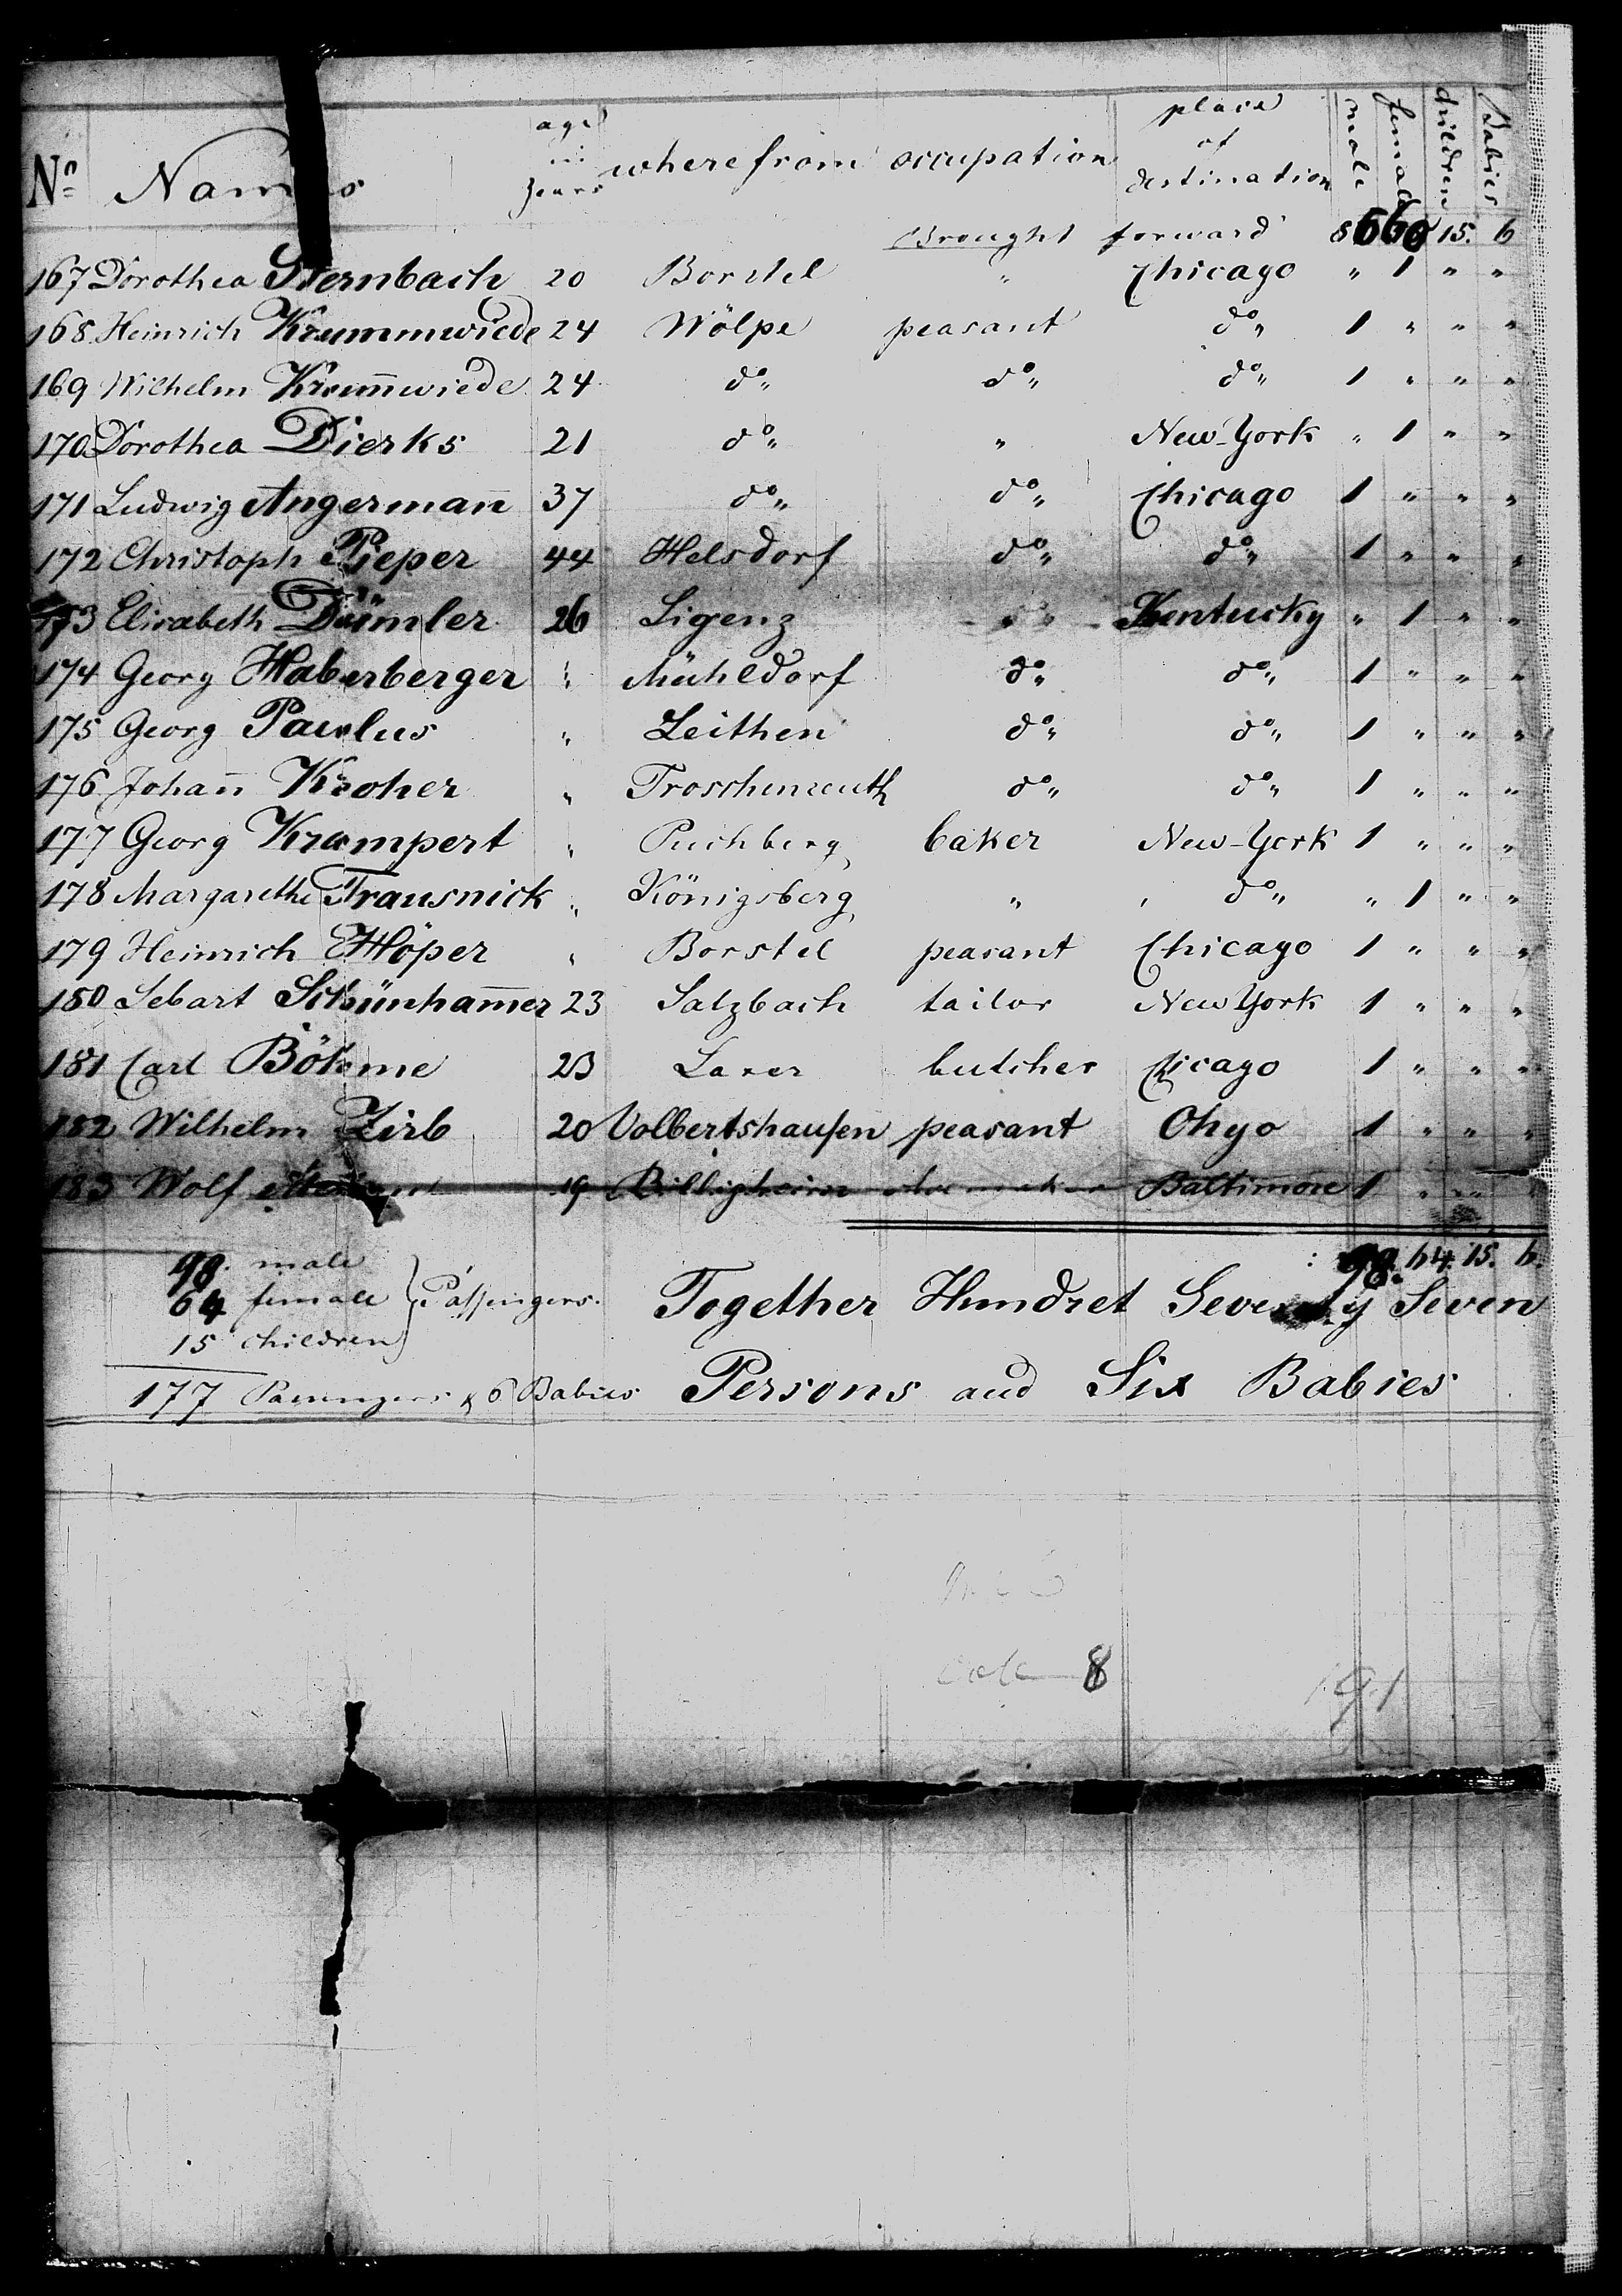 Nº Names age in years where from occupation place of destination male female children Babies
Brought forward 8 60 15. 6
167 Dorothea Sternbach 20 Borstel " Chicago " 1 " "
168 Heinrich Krummwiede 24 Wölpe peasant do " 1 " " "
169 Wilhelm Krum̅wiede 24 do " do " do " 1 " " "
170 Dorothea Dierks 21 do " " New-York " 1 " "
171 Ludwig Angerman̅ 37 do " do " Chicago 1 " " "
172 Christoph Pieper 44 Helsdorf do " do " 1 " " "
173 Elisabeth Däumler 26 Ligenz " Kentucky " 1 " "
174 Georg Haberberger " Mühldorf do " do " 1 " " "
175 Georg Paulus " Leithen do " do " 1 " " "
176 Johan̅ Kroher " Troschenreuth do " do " 1 " " "
177 Georg Krampert " Puchberg baker New-York 1 " " "
178 Margarethe Trausnick " Königsberg " do " " 1 " "
179 Heinrich Höper " Borstel peasant Chicago 1 " " "
180 Sebart Schünham̅er 23 Salzbach tailor New York 1 " " "
181 Carl Böhme 23 Laxer butcher Chicago 1 " " "
182 Wilhelm Zirb 20 Volbertshausen peasant Ohyo 1 " " "
183 Wolf 19 Billigheim Baltimore 1 " " "
98. 64. 15. 6.
98. male
64 female } Passengers.
15 children
Together Hundret Seventy Seven
177 Passengers & 6 Babies Persons and Six Babies
8
191